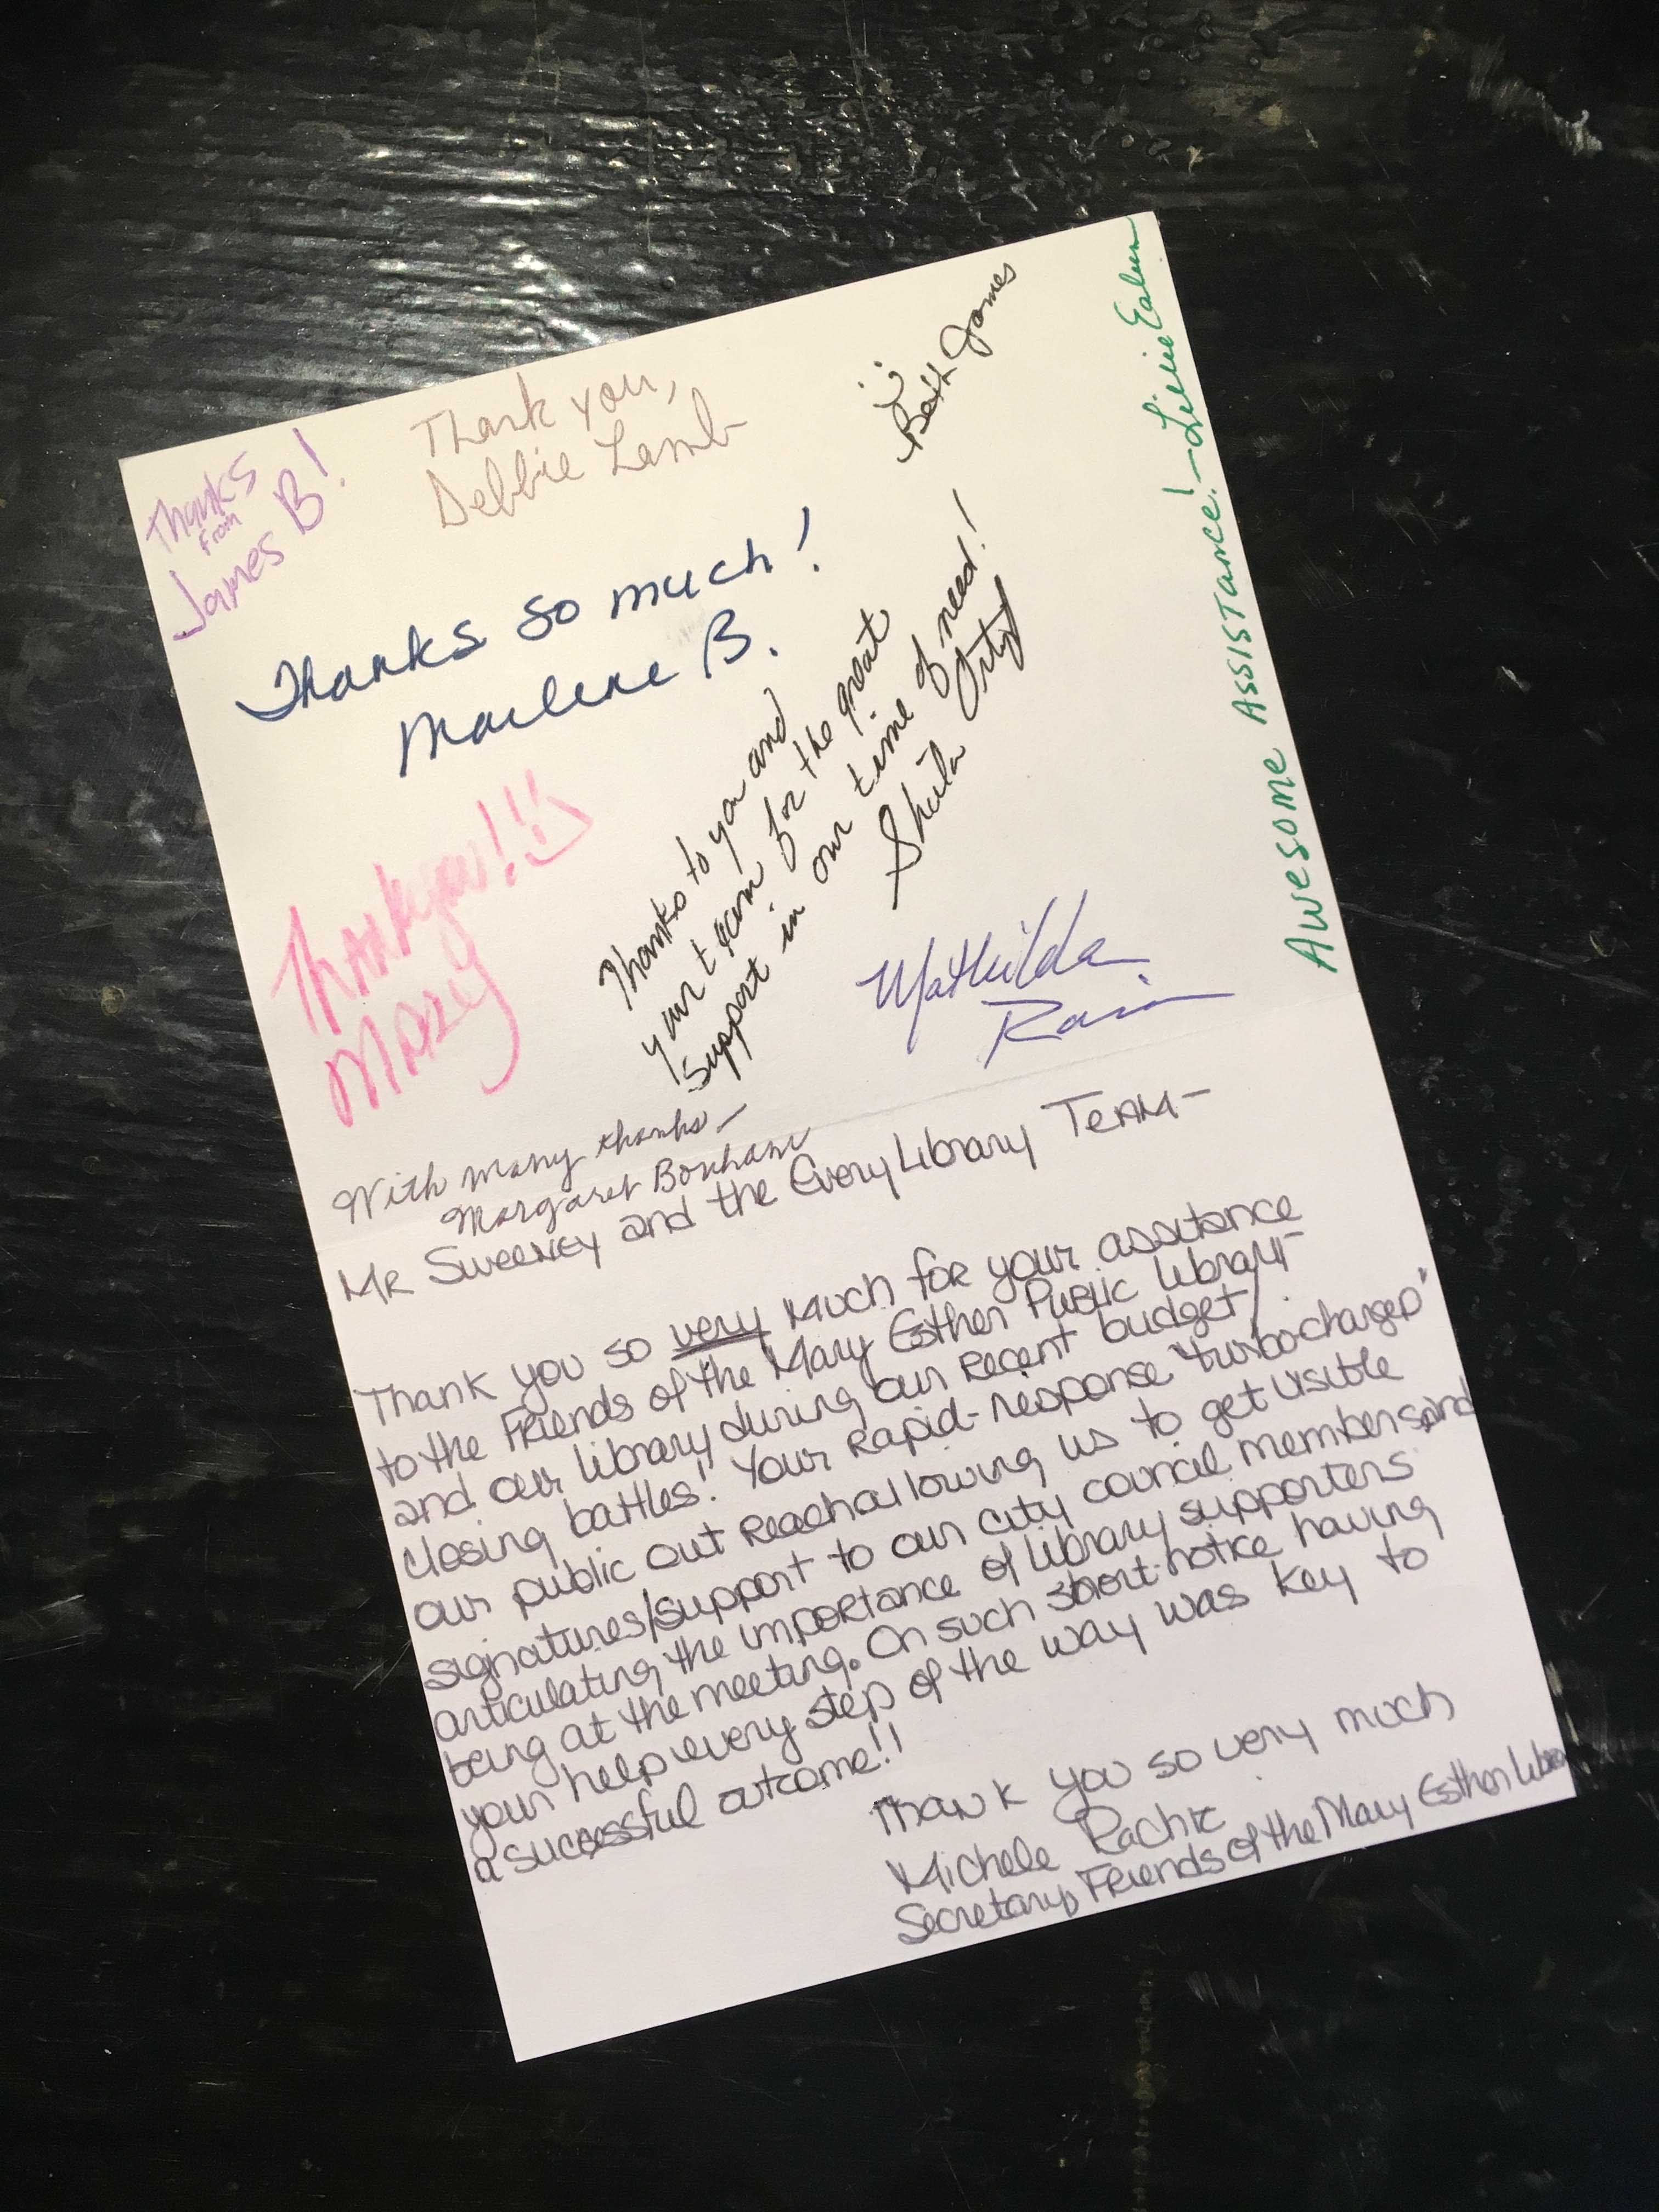 Thanks
from
James B!
Thank you,
Debbie Lamb
Beth Jones
Thanks so much!
Marlene B.
Awesome Assistance! - Lillie
Thank you!!
Mary
Thanks to you and
your team for the great
support in our time of need!
Sheila Ortyl
Mathilda
With many thanks -
Margaret Bonham
Mr Sweeney and the EveryLibrary Team -
Thank you so very much for your assitance
to the Friends of the Mary Esther Public Library
and our library during our recent budget/
closing battles! Your rapid-response "turbo-charged"
our public out reach allowing us to get visible
signatures/support to our city council members and
articulating the importance of library supporters
being at the meeting. On such short notice having
your help every step of the way was key to
a successful outcome!!
Thank you so very much
Michele
Secretary, Friends of the Mary Esther